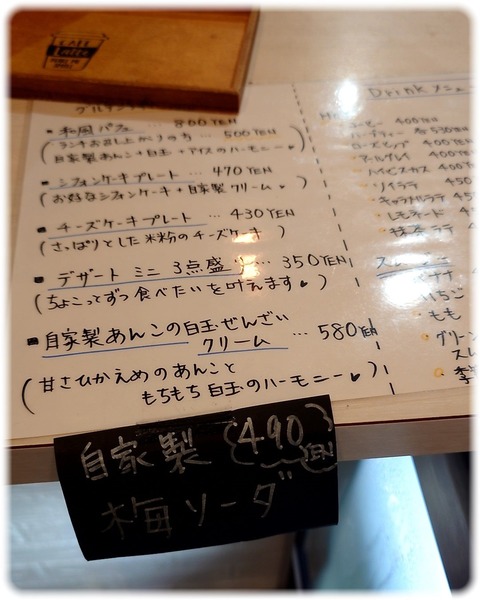 CAFE
Latte
■ 和風パフェ … 800 YEN
(ランチお召し上がりの方 … 500 YEN
自家製あんこ+白玉+アイスのハーモニー♥)
■ シフォンケーキプレート … 470 YEN
(お好なシフォンケーキ+自家製クリーム♥)
■ チーズケーキプレート … 430 YEN
(さっぱりとした米粉のチーズケーキ)
■ デザート ミニ 3点盛り … 350 YEN
(ちょこっとずつ食べたいを叶えます♥)
■ 自家製あんこの白玉ぜんざい
クリーム … 580 YEN
(甘さひかえめのあんこと
もちもち白玉のハーモニー♥)
Drink メニュー
コーヒー 400 YEN
ハーブティー 各530 YEN
ローズヒップ 400 YEN
アールグレイ 400 YEN
ハイビスカス 400
ソイラテ 450
キャラメルラテ 450
レモネード
抹茶ラテ
バナナ
いちご
もも
グリーン
自家製 {490 YEN}
梅ソーダ